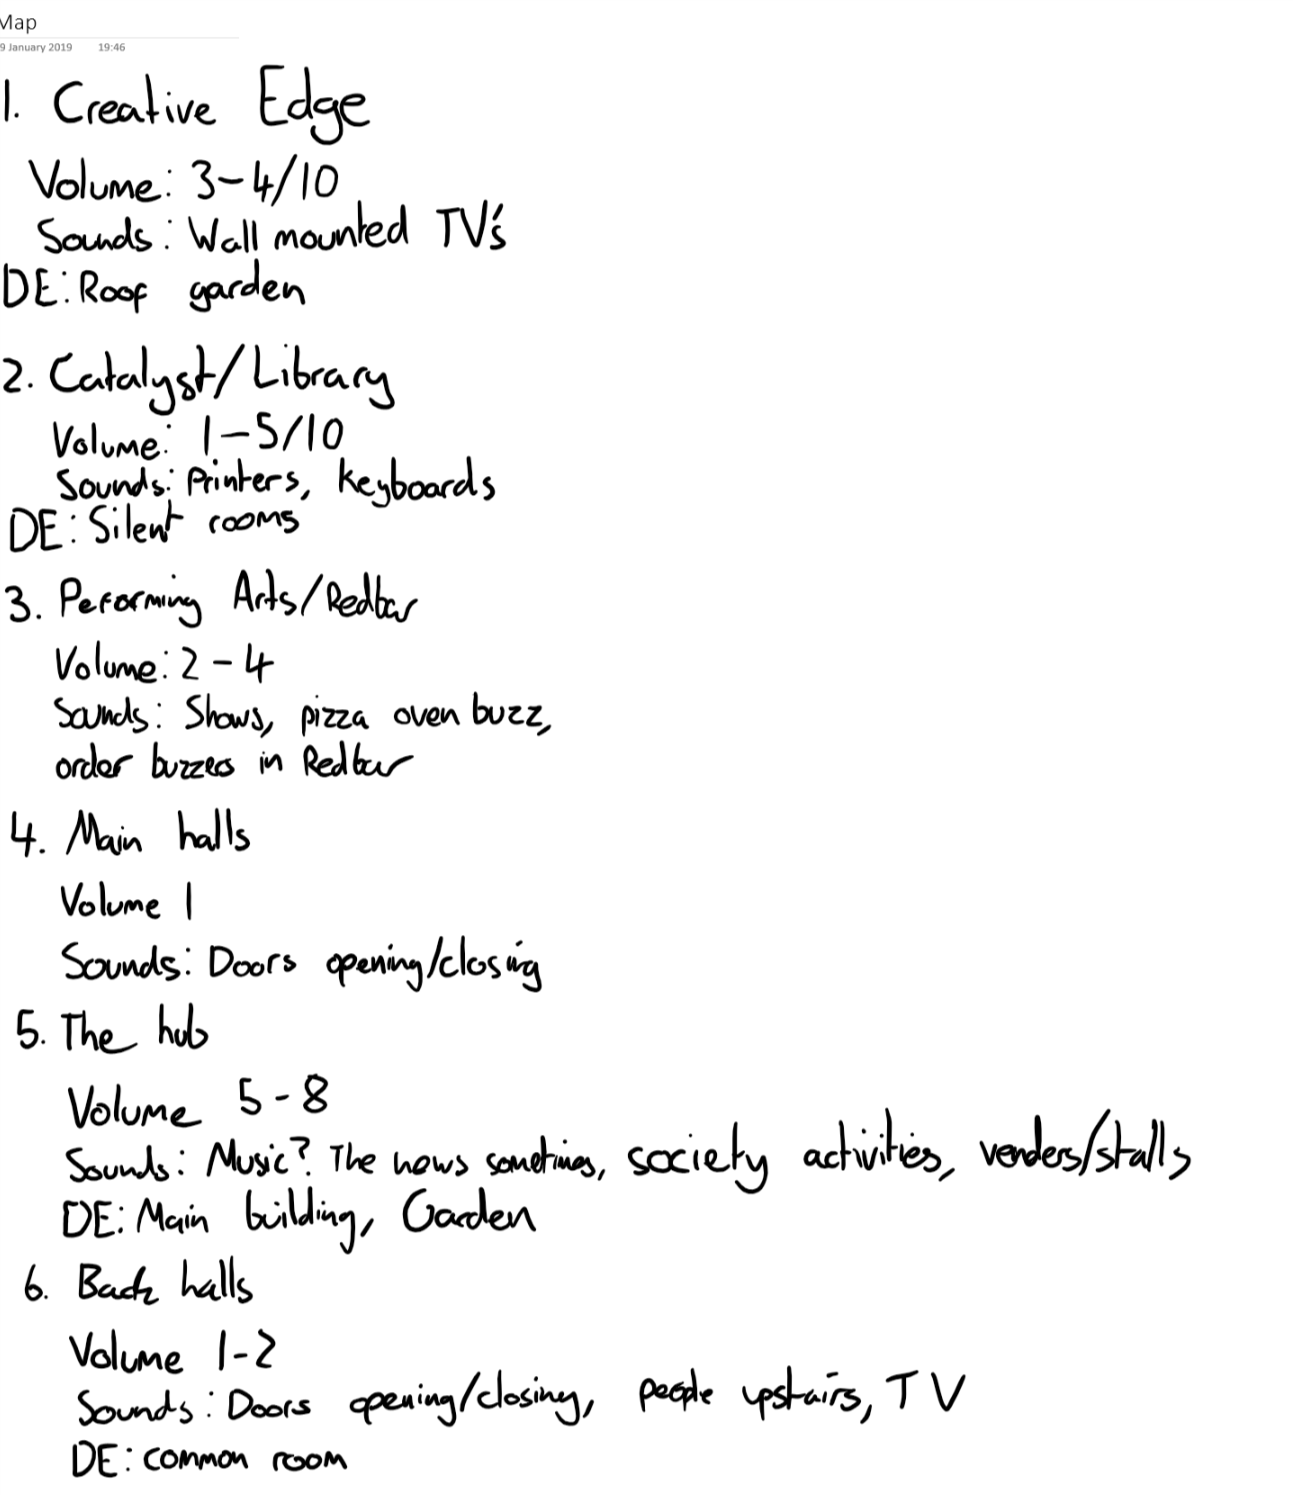 Map
9 January 2019 19:46
1. Creative Edge
Volume: 3-4/10
Sounds: Wall mounted TV's
DE: Roof garden
2. Catalyst/Library
Volume: 1-5/10
Sounds: Printers, keyboards
DE: Silent rooms
3. Peforming Arts/Redbar
Volume: 2-4
Sounds: Shows, pizza oven buzz,
order buzzers in Redbar
4. Main halls
Volume 1
Sounds: Doors opening/closing
5. The hub
Volume 5-8
Sounds: Music? The news sometimes, society activities, venders/stalls
DE: Main building, Garden
6. Back halls
Volume 1-2
Sounds: Doors opening/closing, people upstairs, TV
DE: common room